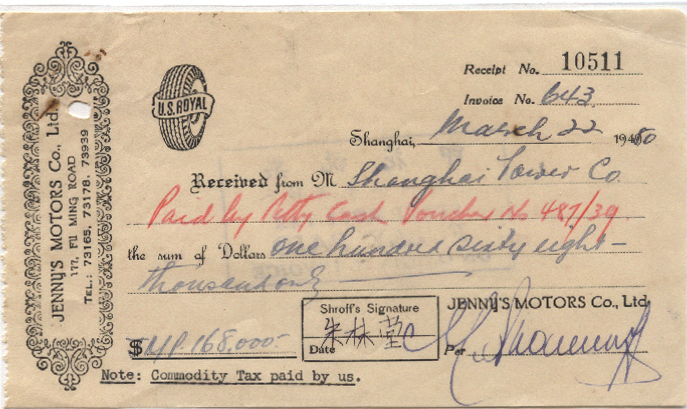 JENNY'S MOTORS Co., Ltd.
177, FU MING ROAD
TEL.: 73165, 73178, 73939
U.S. ROYAL
Receipt No. 10511
Invoice No. 643
Shanghai, March 22 1950
Received from M Shanghai Power Co.
Paid by Petty Cash Voucher No 487/39
the sum of Dollars one hundred sixty eight -
thousand only
Shroff's Signature
朱林堂
Date
JENNY'S MOTORS Co., Ltd.
$ 168,000.-
Per
Note: Commodity Tax paid by us.